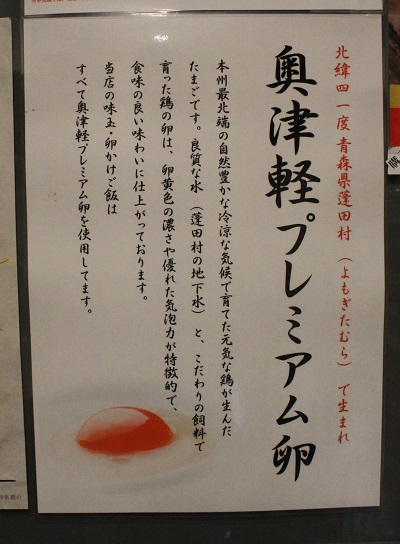 北緯四一度青森県蓬田村（よもぎたむら）で生まれ
奥津軽プレミアム卵
本州最北端の自然豊かな冷涼な気候で育てた元気な鶏が生んだ
たまごです。良質な水（蓬田村の地下水）と、こだわりの飼料で
育った鶏の卵は、卵黄色の濃さや優れた気泡力が特徴的で、
食味の良い味わいに仕上がっております。
当店の味玉・卵かけご飯は
すべて奥津軽プレミアム卵を使用してます。